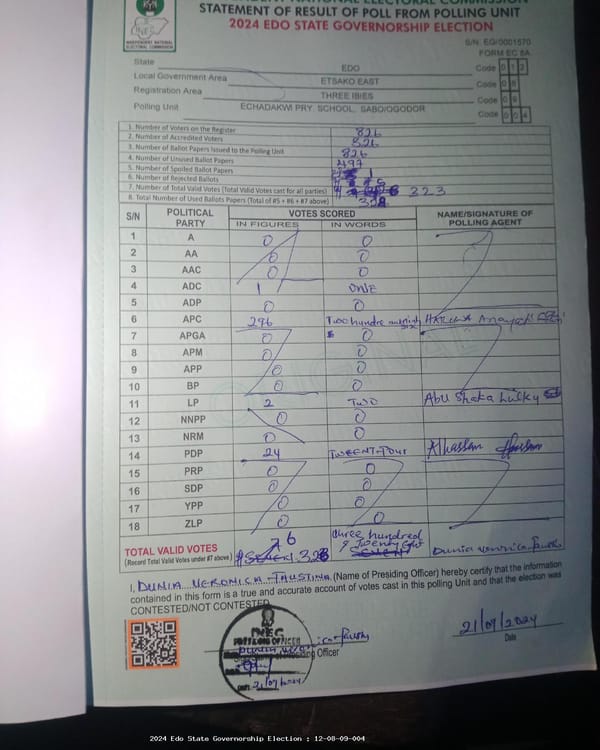 STATEMENT OF RESULT OF POLL FROM POLLING UNIT
2024 EDO STATE GOVERNORSHIP ELECTION
INEC
INDEPENDENT NATIONAL
ELECTORAL COMMISSION
S/N: EG/0001570
FORM EC 8A
State EDO Code 0 1 2
Local Government Area ETSAKO EAST Code 0 8
Registration Area THREE IBIES Code 0 9
Polling Unit ECHADAKWI PRY. SCHOOL, SABO/OGODOR Code 0 0 4
1. Number of Voters on the Register 826
2. Number of Accredited Voters 326
3. Number of Ballot Papers Issued to the Polling Unit 826
4. Number of Unused Ballot Papers 497
5. Number of Spoiled Ballot Papers 1
6. Number of Rejected Ballots 5
7. Number of Total Valid Votes (Total Valid Votes cast for all parties) 323
8. Total Number of Used Ballots Papers (Total of #5 + #6 + #7 above) 328
S/N POLITICAL PARTY VOTES SCORED NAME/SIGNATURE OF POLLING AGENT
IN FIGURES IN WORDS
1 A 0 0
2 AA 0 0
3 AAC 0 0
4 ADC 1 ONE
5 ADP 0 0
6 APC 296
7 APGA 0 0
8 APM 0 0
9 APP 0 0
10 BP 0 0
11 LP 2 TWO Abu Shaka Lucky
12 NNPP 0 0
13 NRM 0 0
14 PDP 24 TWEENT-FOUR Alhassan
15 PRP 0 0
16 SDP 0 0
17 YPP 0 0
18 ZLP 0 0
TOTAL VALID VOTES 323 three hundred
(Record Total Valid Votes under #7 above)
I, DUNIA VERONICA-FAUSTINA (Name of Presiding Officer) hereby certify that the information
contained in this form is a true and accurate account of votes cast in this polling Unit and that the election was
CONTESTED/NOT CONTESTED
INEC
Presiding Officer
21/09/2024
21/09/2024
Date
2024 Edo State Governorship Election : 12-08-09-004